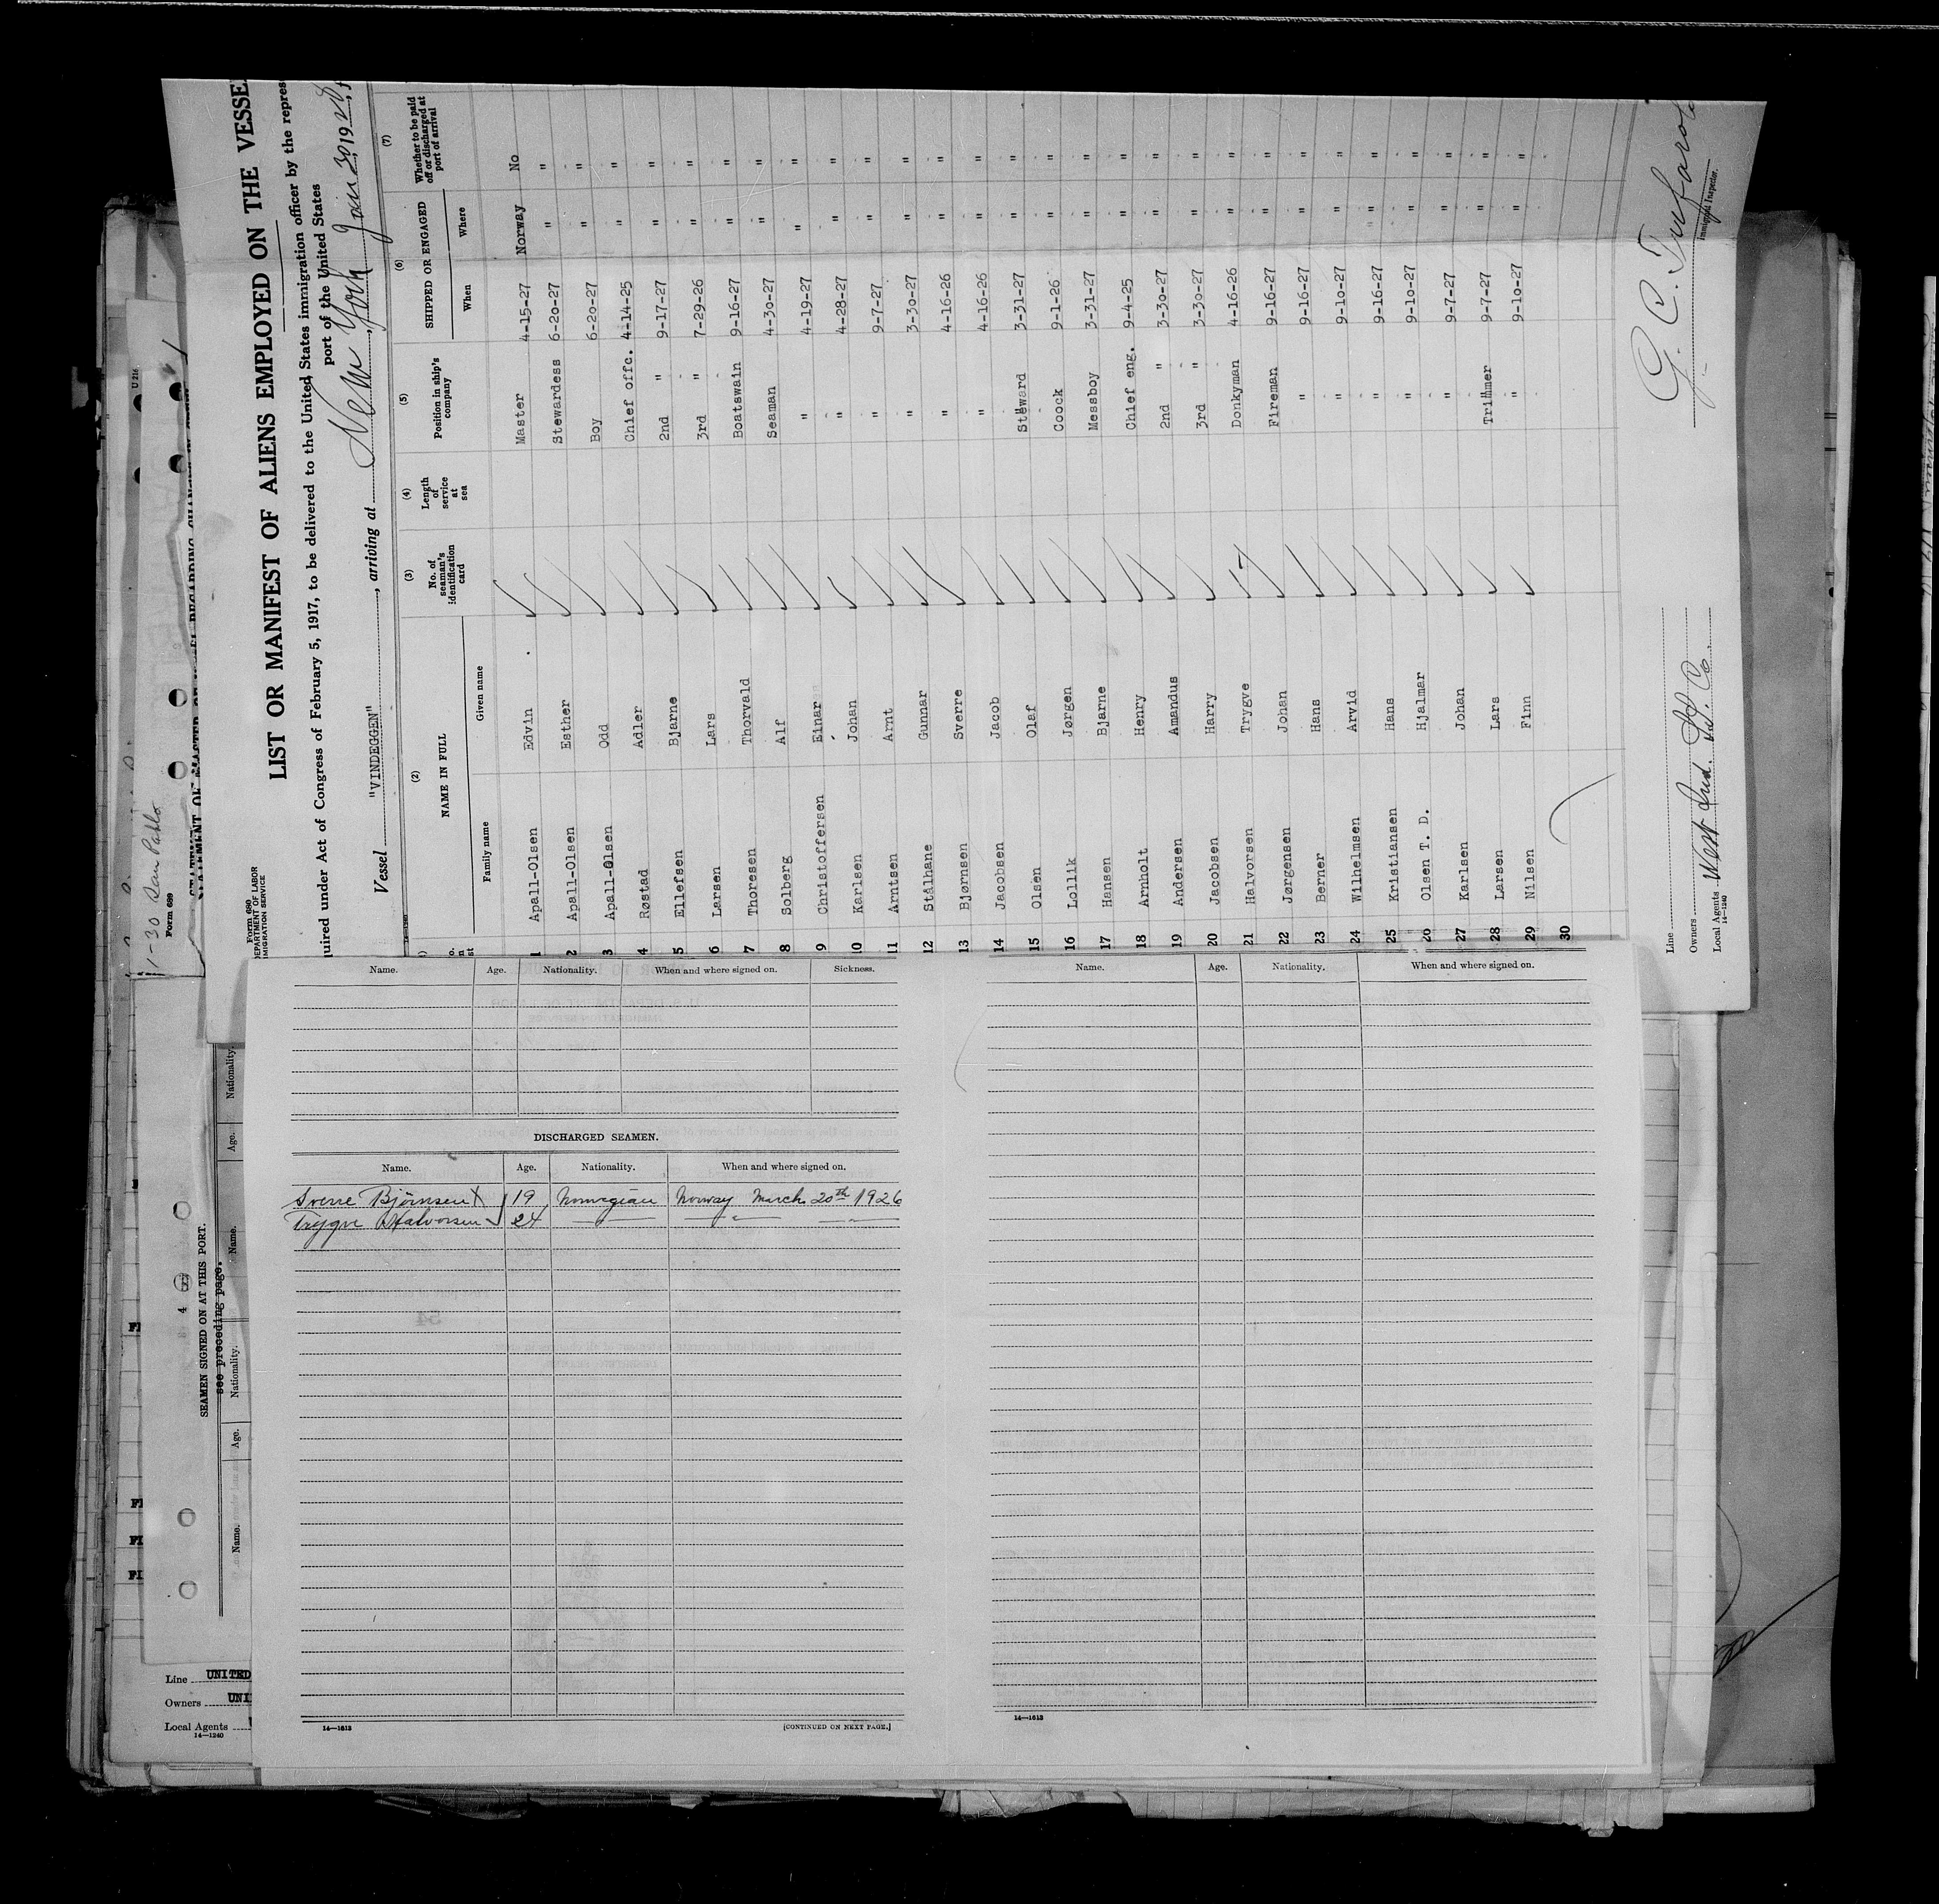 LIST OR MANIFEST OF ALIENS EMPLOYED ON THE VESSE
quired under Act of Congress of February 5, 1917, to be delivered to the United States immigration officer by the repres
port of the United States
Form 680
DEPARTMENT OF LABOR
IMMIGRATION SERVICE
Vessel "VINDEGGEN", arriving at New York, Jan 30, 1928,
(2) (3) (4) (5) (6) (7)
NAME IN FULL
Family name Given name
No. of seaman's identification card
Length of service at sea
Position in ship's company
SHIPPED OR ENGAGED
When Where
Whether to be paid off or discharged at port of arrival
1 Apall-Olsen Edvin Master 4-15-27 Norway No
2 Apall-Olsen Esther Stewardess 6-20-27 " "
3 Apall-Olsen Odd Boy 6-20-27 " "
4 Røstad Adler Chief offc. 4-14-25 " "
5 Ellefsen Bjarne 2nd " 9-17-27 " "
6 Larsen Lars 3rd " 7-29-26 " "
7 Thoresen Thorvald Boatswain 9-16-27 " "
8 Solberg Alf Seaman 4-30-27 " "
9 Christoffersen Einar " 4-19-27 " "
10 Karlsen Johan " 4-28-27 " "
11 Arntsen Arnt " 9-7-27 " "
12 Stålhane Gunnar " 3-30-27 " "
13 Bjørnsen Sverre " 4-16-26 " "
14 Jacobsen Jacob " 4-16-26 " "
15 Olsen Olaf Steward 3-31-27 " "
16 Lollik Jørgen Coock 9-1-26 " "
17 Hansen Bjarne Messboy 3-31-27 " "
18 Arnholt Henry Chief eng. 9-4-25 " "
19 Andersen Amandus 2nd " 3-30-27 " "
20 Jacobsen Harry 3rd " 3-30-27 " "
21 Halvorsen Trygve Donkyman 4-16-26 " "
22 Jørgensen Johan Fireman 9-16-27 " "
23 Berner Hans " 9-16-27 " "
24 Wilhelmsen Arvid " 9-10-27 " "
25 Kristiansen Hans " 9-16-27 " "
26 Olsen T. D. Hjalmar " 9-10-27 " "
27 Karlsen Johan " 9-7-27 " "
28 Larsen Lars Trimmer 9-7-27 " "
29 Nilsen Finn " 9-10-27 " "
30
Line
Owners
Local Agents West Ind. SS. Co.
14—1240
Immigrant Inspector.
1-30 San Pablo
Form 689
U 216
SEAMEN SIGNED ON AT THIS PORT.
see preceding page.
Name. Age. Nationality. Name. Age. Nationality.
Line UNITED
Owners UNI
Local Agents
14—1240
Name. Age. Nationality. When and where signed on. Sickness.
DISCHARGED SEAMEN.
Name. Age. Nationality. When and where signed on.
Sverre Bjørnsen X 19 Norwegian Norway March 20th 1926
Trygve Halvorsen 24 — — " — — " —
14—1613
[CONTINUED ON NEXT PAGE.]
Name. Age. Nationality. When and where signed on.
14—1613